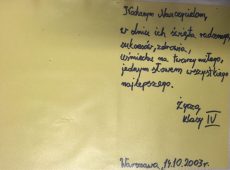 Kochanym Nauczycielom,
w dniu ich święta radosnego
sukcesów, zdrowia,
uśmiechu na twarzy miłego,
jednym słowem wszystkiego
najlepszego.
Życzą
klasy IV
Warszawa, 14.10.2003r.